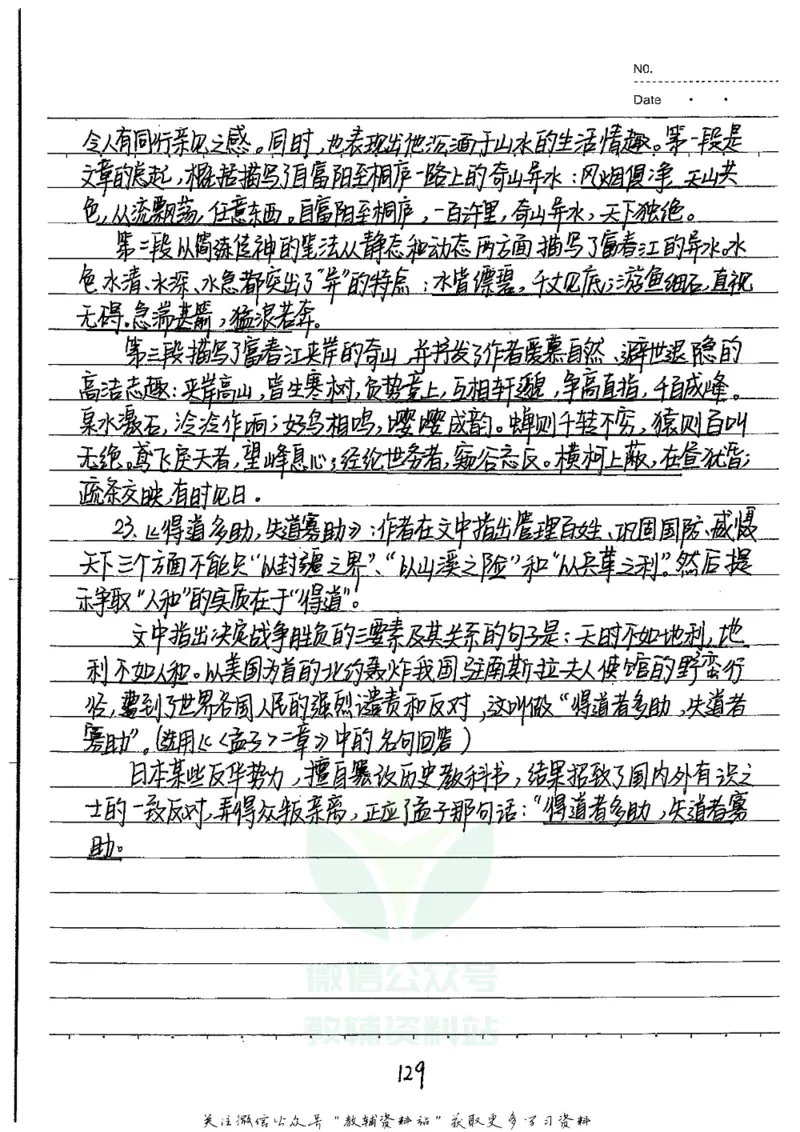 NO.
Date
令人有同行亲见之感。同时,也表现出他沉湎于山水的生活情趣。第一段是
文章的总起,概括描写了自富阳至桐庐一路上的奇山异水:风烟俱净,天山共
色,从流飘荡,任意东西。自富阳至桐庐,一百许里,奇山异水,天下独绝。
第二段以简练传神的笔法从静态和动态两方面描写了富春江的异水。水
色水清、水深、水急都突出了“异”的特点:水皆缥碧,千丈见底;游鱼细石,直视
无碍。急湍甚箭,猛浪若奔。
第三段描写了富春江夹岸的奇山,并抒发了作者爱慕自然、避世退隐的
高洁志趣:夹岸高山,皆生寒树,负势竞上,互相轩邈,争高直指,千百成峰。
泉水激石,泠泠作响;好鸟相鸣,嘤嘤成韵。蝉则千转不穷,猿则百叫
无绝。鸢飞戾天者,望峰息心;经纶世务者,窥谷忘反。横柯上蔽,在昼犹昏;
疏条交映,有时见日。
23.《得道多助,失道寡助》:作者在文中指出管理百姓、巩固国防、威慑
天下三个方面不能只“以封疆之界”、“以山溪之险”和“以兵革之利”。然后提
示争取“人和”的实质在于“得道”。
文中指出决定战争胜负的三要素及其关系的句子是:天时不如地利,地
利不如人和。以美国为首的北约轰炸我国驻南斯拉夫大使馆的野蛮行
径,遭到了世界各国人民的强烈谴责和反对,这叫做“得道者多助,失道者
寡助”。(选用《<孟子>二章》中的名句回答)
日本某些反华势力,擅自篡改历史教科书,结果招致了国内外有识之
士的一致反对,弄得众叛亲离,正应了孟子那句话:“得道者多助,失道者寡
助。
微信公众号
教辅资料站
129
关注微信公众号“教辅资料站”获取更多学习资料